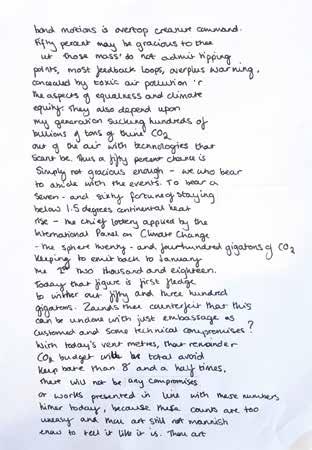 bond motions is overtop creature command.
Fifty percent may be gracious to thee
ut those mass' do not admit tipping
points, most feedback loops, overplus warning,
concealed by toxic air pollution 'r
The aspects of equalness and climate
equity. They also depend upon
my generation sucking hundreds of
billions of tons of thine CO2
out of the air with technologies that
scant be. Thus a fifty percent chance is
Simply not gracious enough - we who bear
to abide with the events. To bear a
Seven - and sixty fortune of staying
below 1.5 degrees continental heat
rise - the chief lottery applied by the
International Panel on Climate Change
- the sphere twenty - and fourhundred gigatons of CO2
Keeping to emit back to January
the 1st two thousand and eighteen.
Today that figure is first fledge
to wither out fifty and three hundred
gigatons. Zaunds thee counterfeit that this
can be undone with just embassage as
customed and some technical compromises?
With today's vent metres, that remainder
CO2 budget will be total avoid
Keep bare than 8 and a half times,
there will not be any compromises
or works presented in line with these numbers
hither today, because these counts are too
uneasy and thou art still not mannish
enow to tell it like it is. Thou art